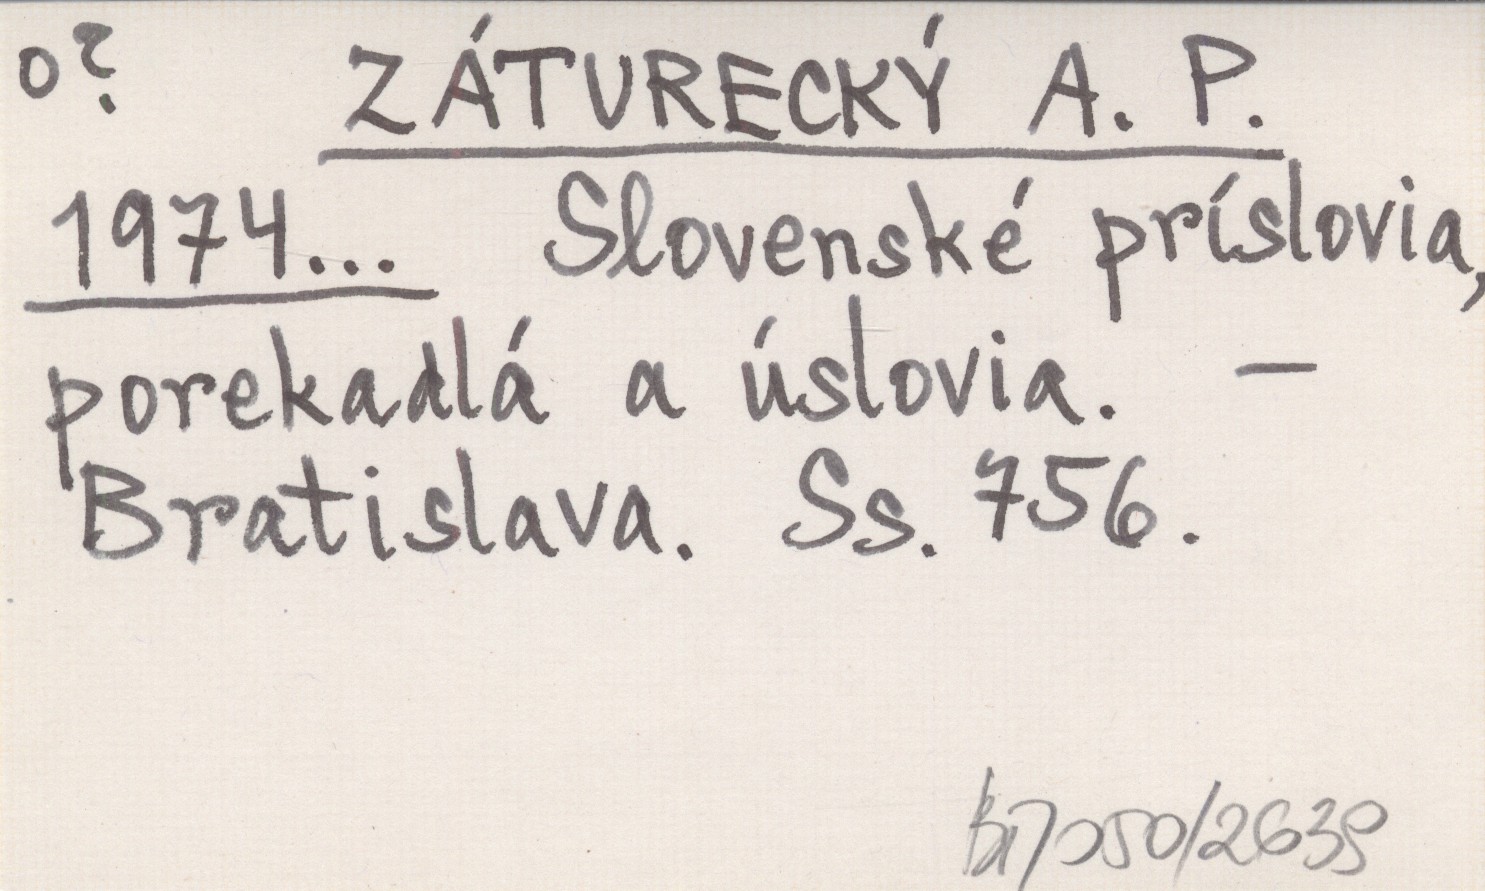 o? ZÁTURECKÝ A. P.
1974... Slovenské príslovia,
porekadlá a úslovia. —
Bratislava. Ss. 756.